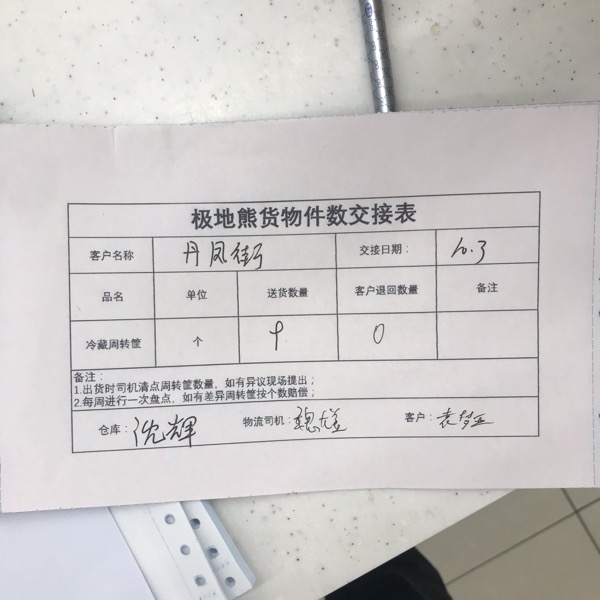 极地熊货物件数交接表
客户名称 丹凤街 交接日期： 10.3
品名 单位 送货数量 客户退回数量 备注
冷藏周转筐 个 9 0
备注：
1.出货时司机清点周转筐数量，如有异议现场提出；
2.每周进行一次盘点，如有差异周转筐按个数赔偿；
仓库： 沈辉 物流司机： 客户： 袁梦亚